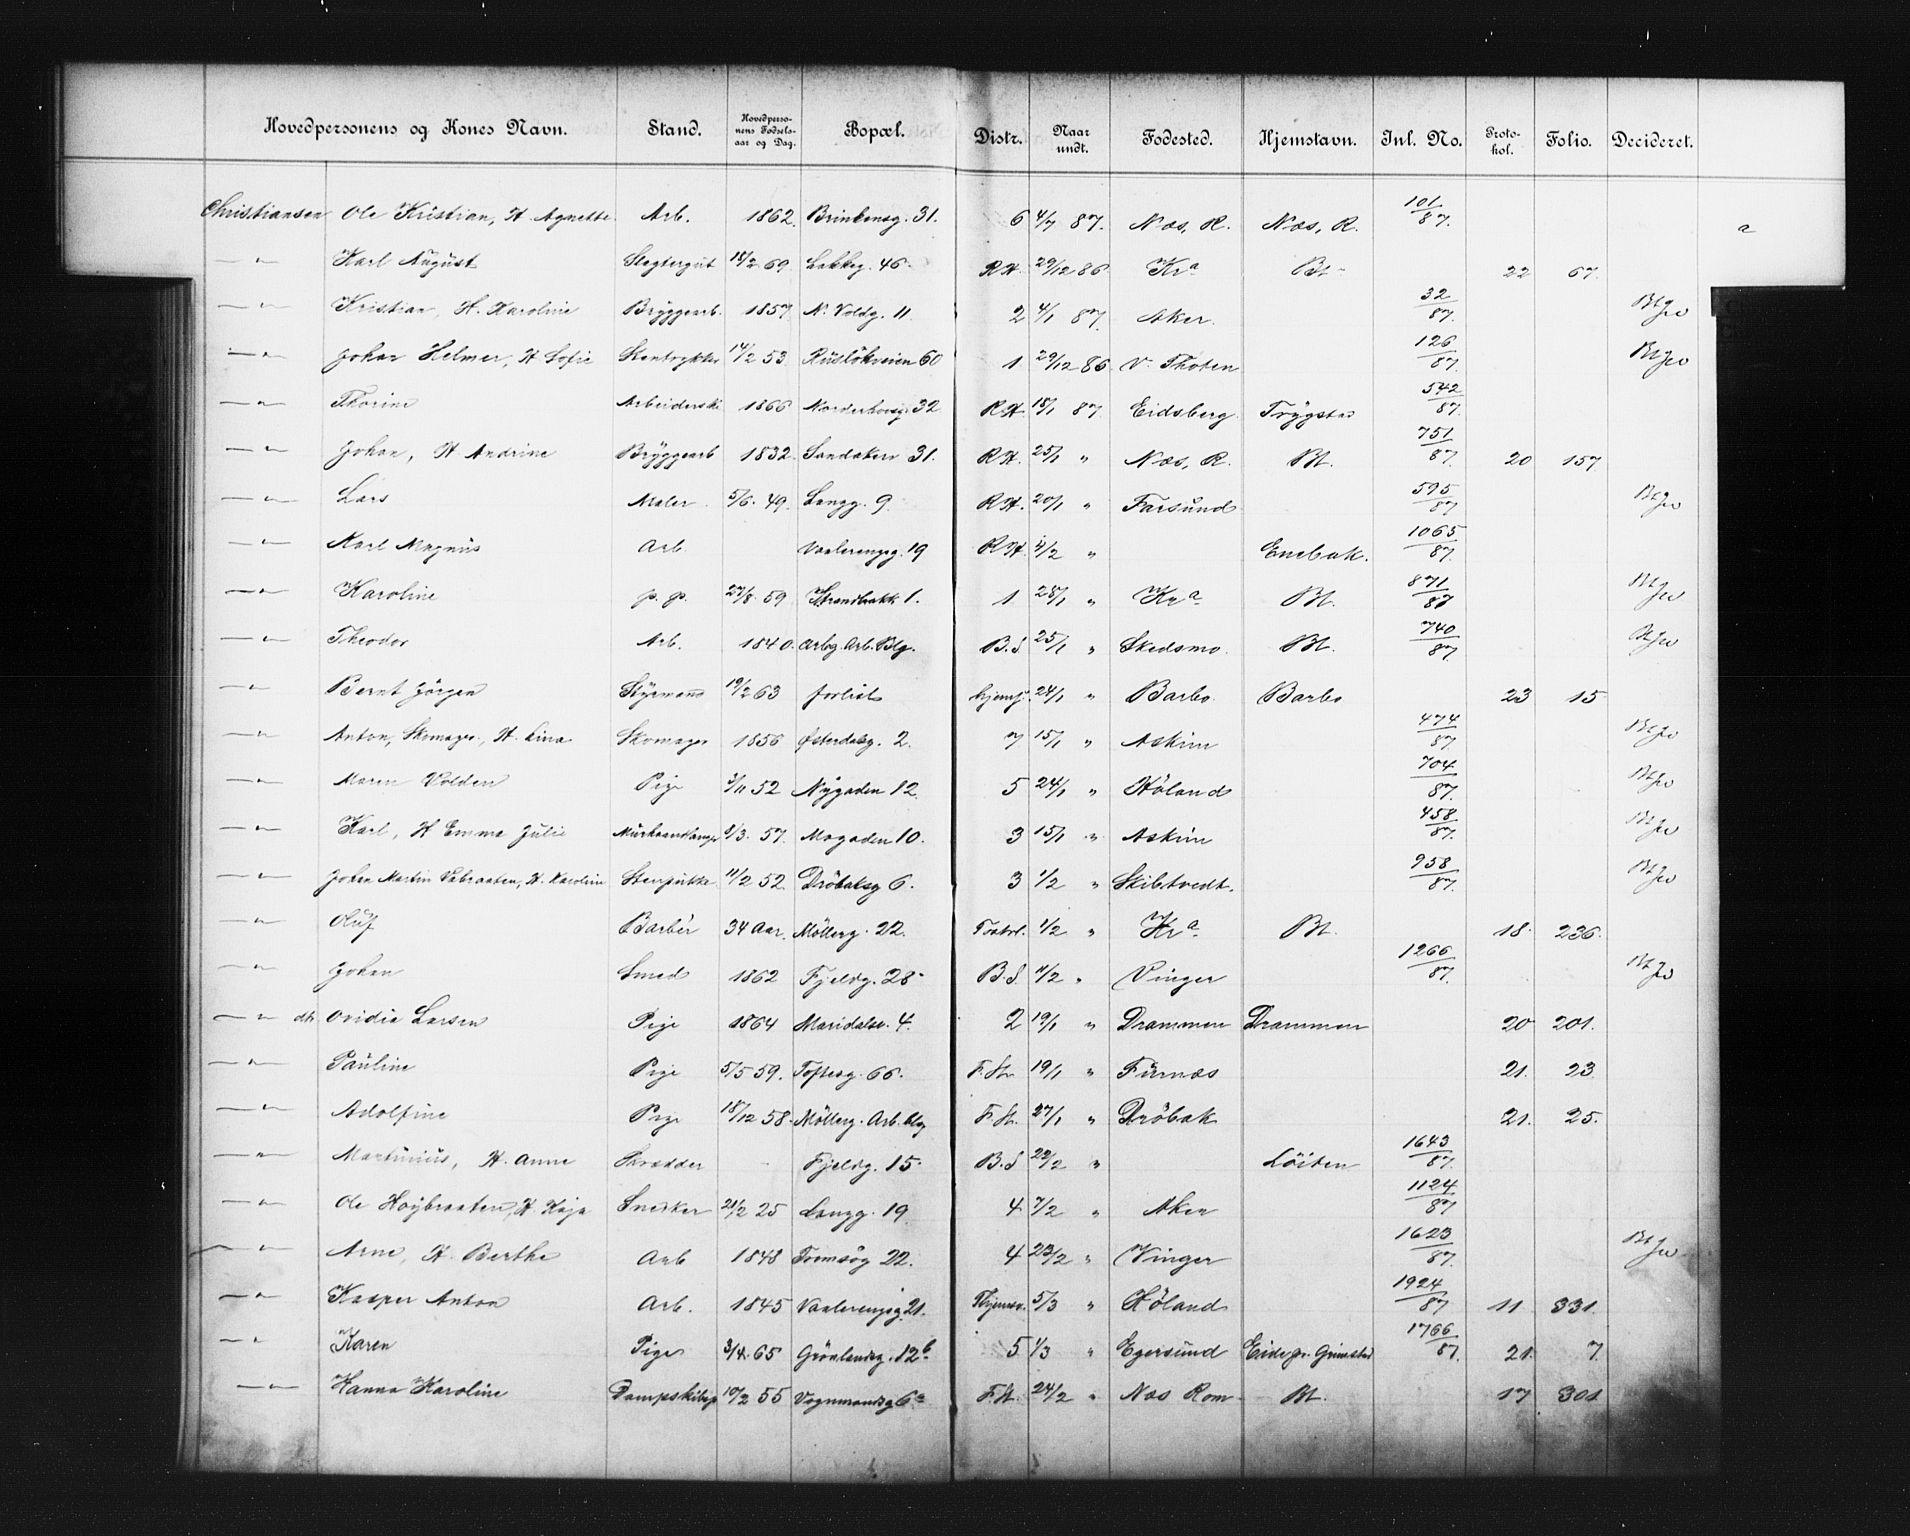 Hovedpersonens og Kones Navn. Stand. Hovedperso-nens Fødsels-aar og Dag. Bopæl. Distr. Naar undt. Fødested. Hjemstavn. Inl. No. Proto-kol. Folio. Decideret.
Christiansen Ole Kristian, H. Agnette Arb. 1862. Brinkensg. 31. 6 4/7 87. Næs, R. Næs, R. 101/87. a
—"— Karl August Slagtergut 18/2 69 Lakkeg. 46. R.H. 29/12 86 Kra Bt. 22 67.
—"— Kristian, H. Karoline Bryggearb. 1857. N. Voldg. 11. 2 4/1 87. Aker. 32/87.
—"— Johan Helmer, H Sofie Stentrykker 14/2 53. Rüsløkveien 60 1. 29/12 86 V. Thoten 126/87.
—"— Thorine Arbeiderske 1866 Norderhovsg. 32 R.H. 18/1 87 Eidsberg Trygstad 542/87.
—"— Johan, H Andrine Bryggearb 1832. Sandakerv 31. R.H. 25/1 " Næs, R. Bt. 751/87. 20 157
—"— Lars Maler 5/6. 49. Langg. 9. R.H. 20/1 " Farsund 595/87
—"— Karl Magnus Arb. Vaalerengsg. 19 R.H. 4/2 " Enebak. 1065/87.
—"— Karoline p. p. 27/8. 59 Strandbakk 1. 1. 28/1 " Kra Bt. 871/87
—"— Theodor Arb. 1840. Arbg. Arb. Blg. B.S 25/1 " Skedsmo. Bt. 740/87.
—"— Bernt Jörgen Styrmand 19/2 63 forlist 24/1 " Barbo. Barbo 23 15
—"— Anton, Skomager, H. Lina Skomager 1856 Østerdalsg. 2. 7 15/1 " Askim 474/87
—"— Maren Volden Pige 3/11 52 Nygaden 12. 5 24/1 " Høland 704/87.
—"— Karl, H Emma Julie Murhaandlanger 2/3. 57. Mogaden 10. 3 15/1 " Askim 458/87.
—"— Johan Martin H. Karoline Stenpukker 11/2 52. Drøbaksg 6. 3 1/2 " Skibtvedt. 958/87.
—"— Oluf Barbér 34 Aar. Möllerg. 22. 1/2 " Kra Bt. 18. 236.
—"— Johan Smed 1862 Fjeldg. 28 B.S. 11/2 " Vinger 1266/87.
—"— dtr Ovidia Larsen Pige 1864 Maridalsv. 4. 2 19/1 " Drammen Drammen 20 201.
—"— Pauline Pige 5/5 59. Toftesg. 66. F.St. 19/1 " Furnæs 21. 23
—"— Adolfine Pige 18/12 58. Möllerg. Arb. blg F.St. 27/1 " Drøbak 21. 25.
—"— Martinius, H. Anne Skrædder Fjeldg. 15 B.S 22/2 " Löiten 1643/87.
—"— Ole Høybraaten, H. Kaja Snedker 21/2 25 Langg. 19. 4. 7/2 " Aker 1124/87
—"— Arne, H. Berthe Arb 1848 Tromsög 22. 4 23/2 " Vinger 1623/87.
—"— Kasper Anton Arb. 1845 Vaalerengsg 21. Hjemsv. 5/3 " Høland 1924/87 11 331.
—"— Karen Pige 3/4. 65 Grönlandsg. 12b 5. 1/3 " Egersund Eide pr. Grimstad 1766/87. 21. 7.
—"— Hanna Karoline 10/2 55 Vognmandsg 6a F.St. 24/2 " Næs Rom. Bt. 17 301